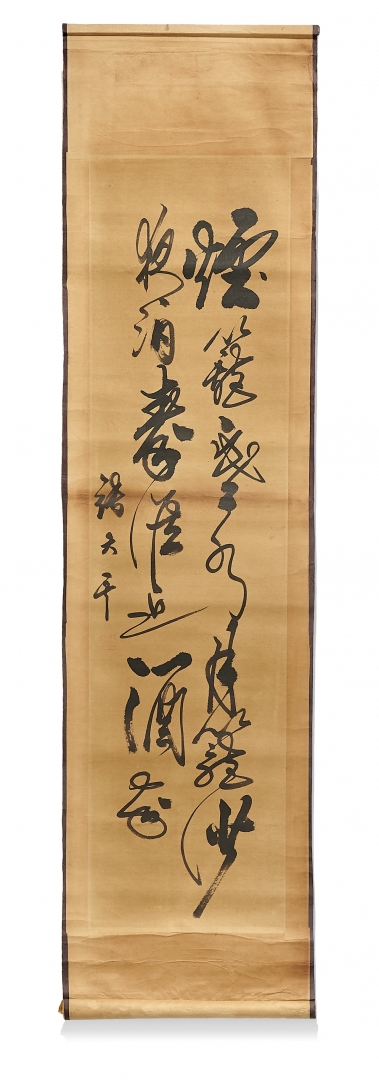 煙籠寒水月籠沙
夜泊秦淮近酒家